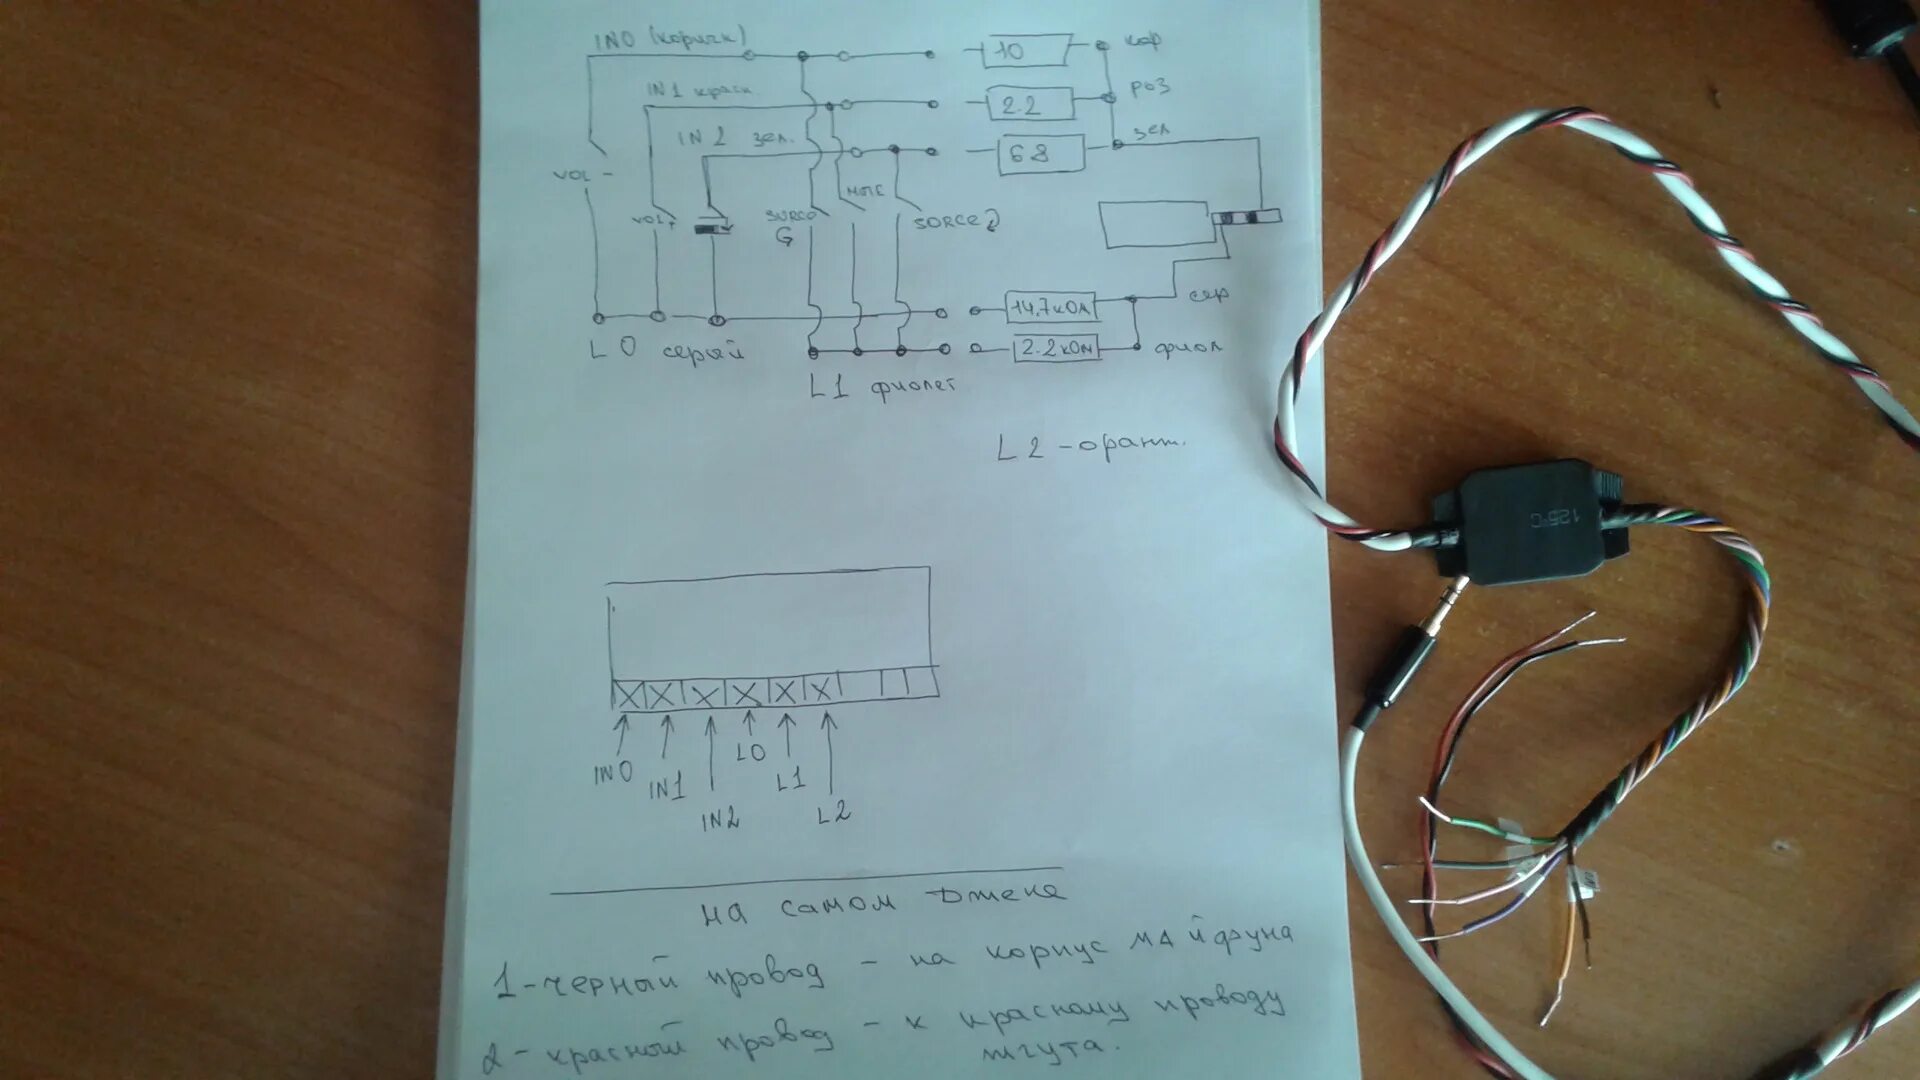 IN0 (коричн)
IN1 красн.
IN2 зел.
VOL -
VOL+
MUTE
SORCE2
10
2.2
68
кор
роз
зел
14,7кОм
2.2кОм
сер
фиол
L0 серый
L1 фиолет
L2 - оранж.
125°C
IN0
IN1
IN2
L0
L1
L2
на самом Джеке
1 - черный провод - на корпус Майфуна
2 - красный провод - к красному проводу
жгута.